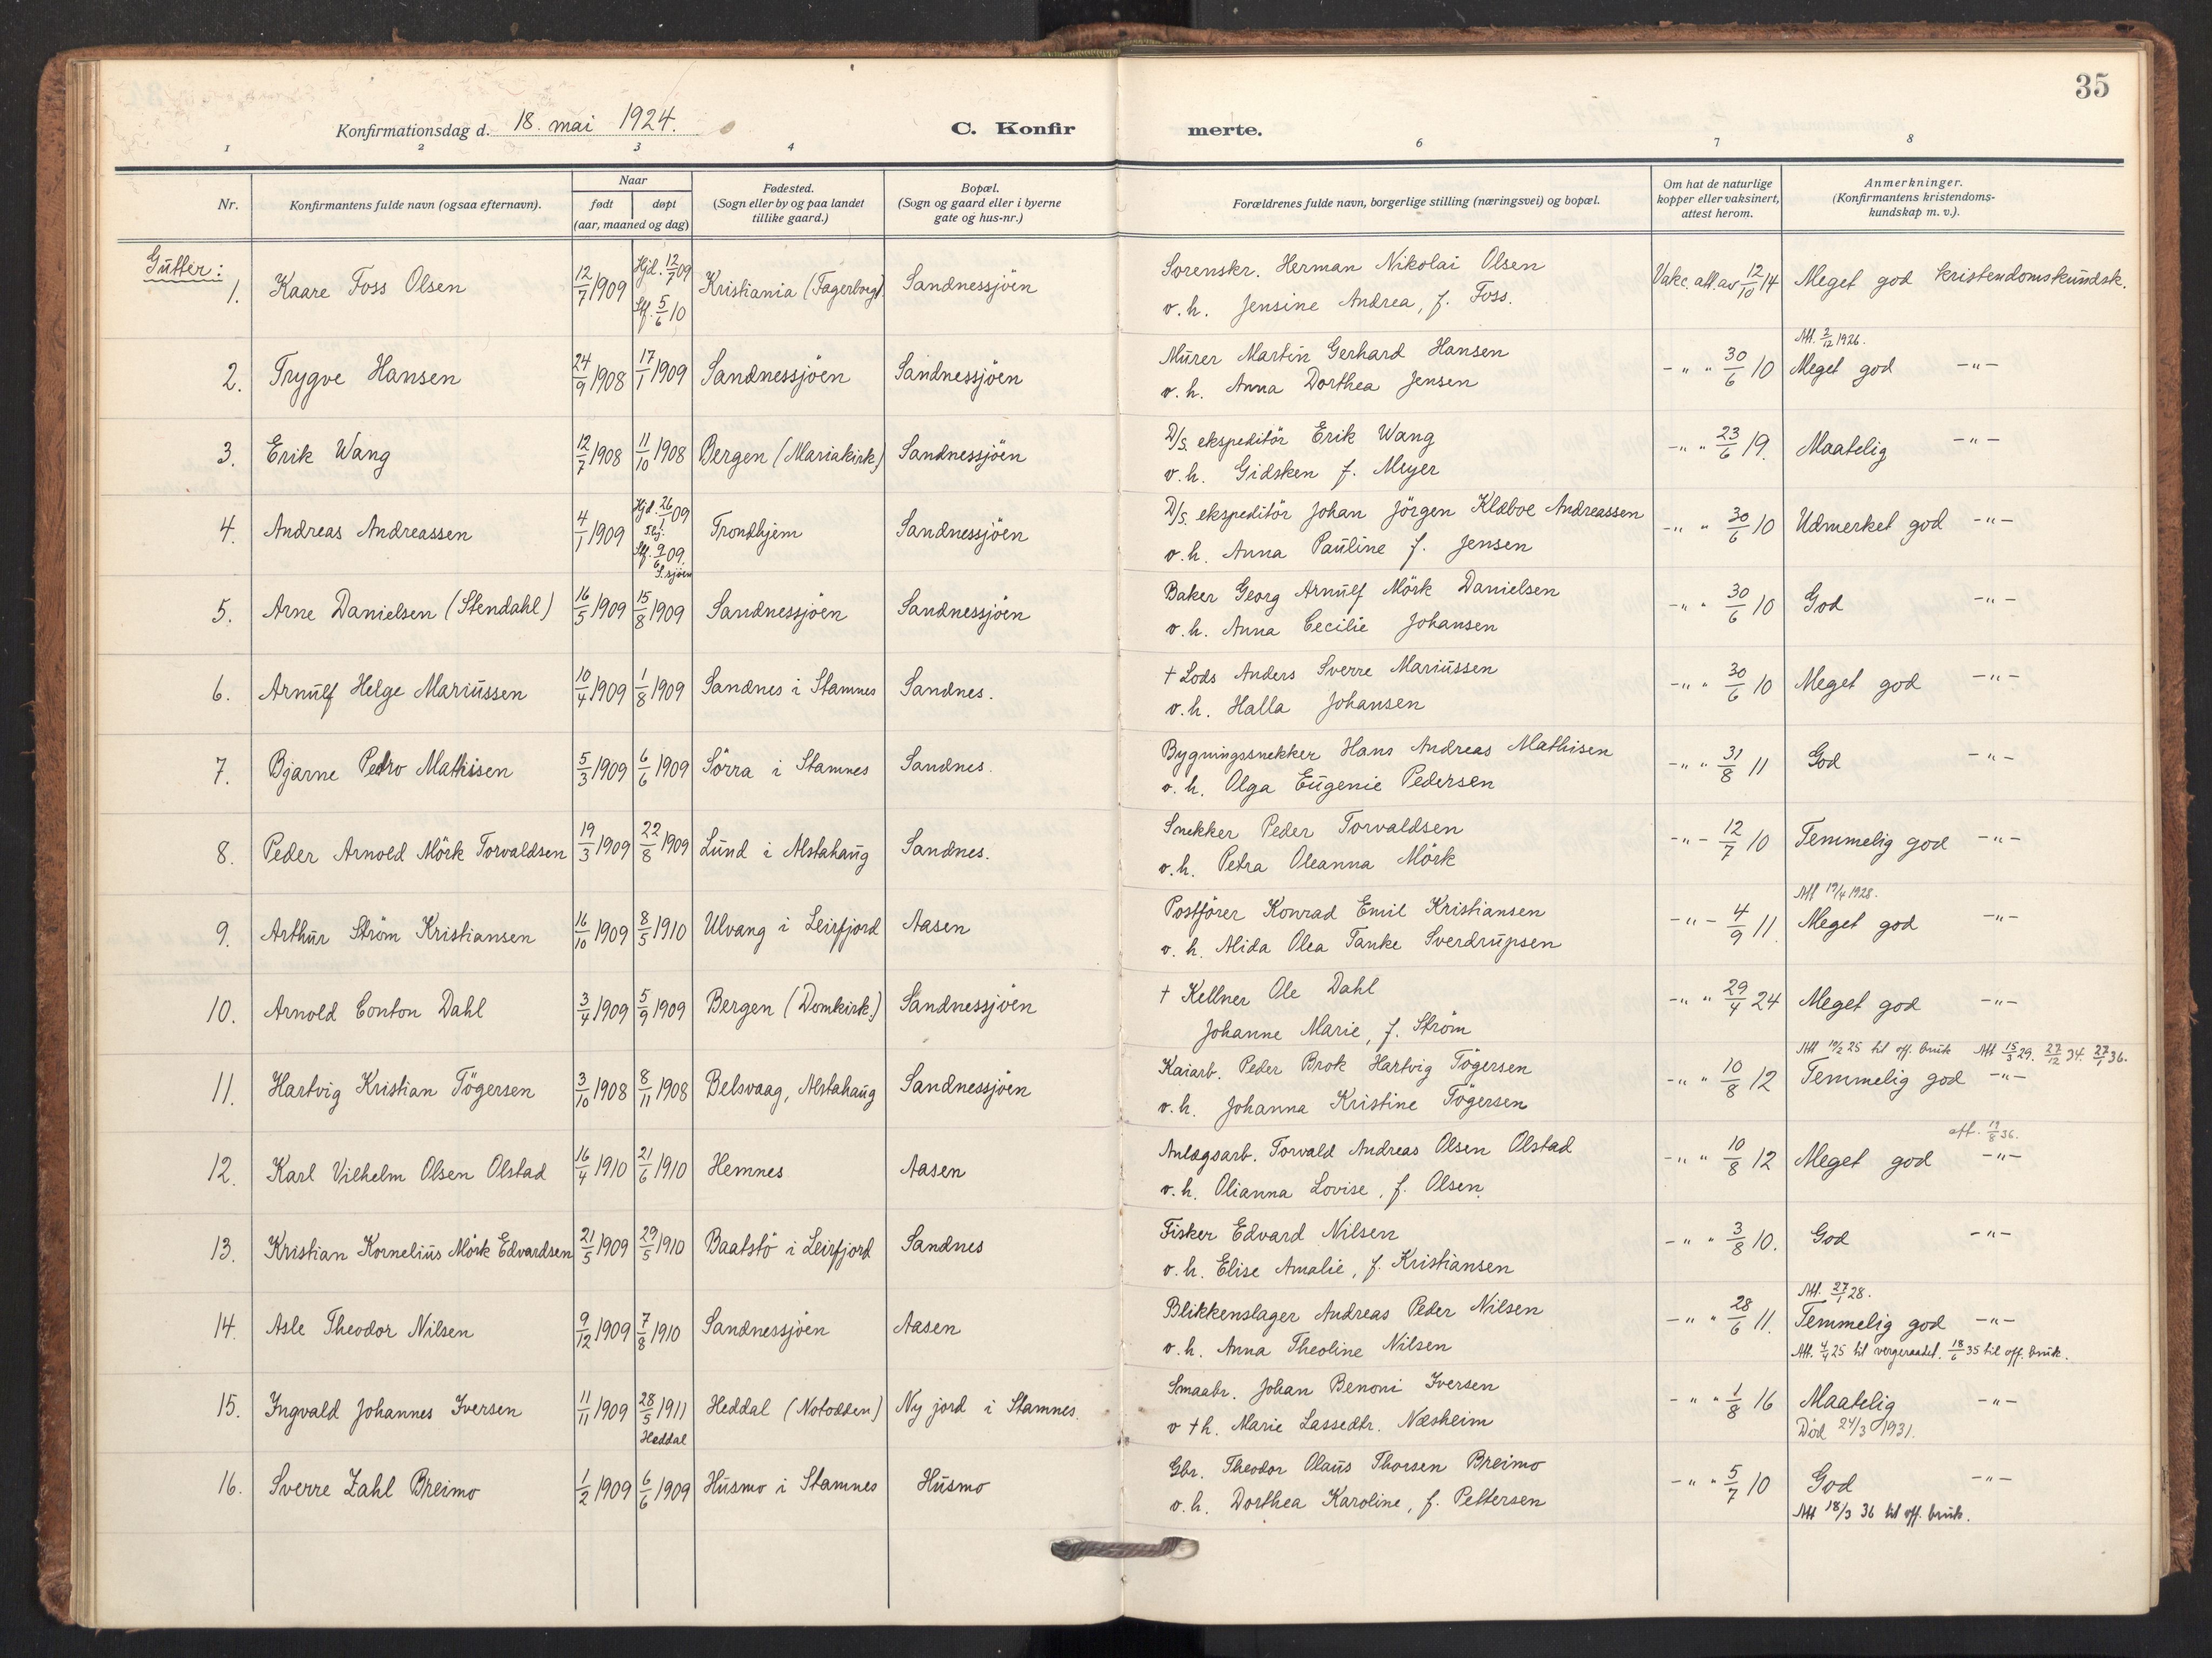 35
Konfirmationsdag d. 18. mai 1924.
C. Konfirmerte.
1 2 3 4 6 7 8
Nr.
Konfirmantens fulde navn (ogsaa efternavn).
Naar
født døpt
(aar, maaned og dag)
Fødested.
(Sogn eller by og paa landet
tillike gaard.)
Bopæl.
(Sogn og gaard eller i byerne
gate og hus-nr.)
Forældrenes fulde navn, borgerlige stilling (næringsvei) og bopæl.
Om hat de naturlige
kopper eller vaksinert,
attest herom.
Anmerkninger.
(Konfirmantens kristendoms-
kundskap m. v.).
Gutter:
1. Kaare Foss Olsen 12/7 1909 Hjd. 12/7 09 Stf. 5/6 10 Kristiania (Fagerborg). Sandnessjöen
Sorenskr. Herman Nikolai Olsen
o. h. Jensine Andrea, f. Foss.
Vakc. att. av 12/10 14 Meget god kristendomskundsk.
Att. 2/12 1926.
2. Trygve Hansen 24/9 1908 17/1 1909 Sandnessjöen Sandnessjöen
Murer Martin Gerhard Hansen
o. h. Anna Dorthea Jensen
-"- " 30/6 10 Meget god -"-
3. Erik Wang 12/7 1908 11/10 1908 Bergen (Mariakirk.) Sandnessjöen
D/S. ekspeditör Erik Wang
o. h. Gidsken f. Meyer
-"- " 23/6 19. Maatelig -"-
4. Andreas Andreassen 4/1 1909 Hjd. 26/1 09 Stf. 9/6 09. S.sjöen Trondhjem Sandnessjöen
D/S. ekspeditör Johan Jörgen Klæboe Andreassen
o. h. Anna Pauline f. Jensen
-"- " 30/6 10 Udmerket god -"-
5. Arne Danielsen (Stendahl) 16/5 1909 15/8 1909 Sandnessjöen Sandnessjöen
Baker Georg Arnulf Mörk Danielsen
o. h. Anna Cecilie Johansen
-"- " 30/6 10 God -"-
6. Arnulf Helge Mariussen 10/4 1909 1/8 1909 Sandnes i Stamnes Sandnes.
† Lods Anders Sverre Mariussen
o. h. Halla Johansen
-"- " 30/6 10 Meget god -"-
7. Bjarne Pedro Mathisen 5/3 1909 6/6 1909 Sörra i Stamnes Sandnes.
Bygningssnekker Hans Andreas Mathisen
o. h. Olga Eugenie Pedersen
-"- " 31/8 11 God -"-
8. Peder Arnold Mörk Torvaldsen 19/3 1909 22/8 1909 Lund i Alstahaug Sandnes.
Snekker Peder Torvaldsen
o. h. Petra Oleanna Mörk
-"- 12/7 10 Temmelig god -"-
Att 19/4 1928.
9. Arthur Ström Kristiansen 16/10 1909 8/5 1910 Ulvang i Leirfjord Aasen
Postförer Konrad Emil Kristiansen
o. h. Alida Olea Tanke Sverdrupsen
-"- 4/9 11. Meget god -"-
10. Arnold Conton Dahl 3/4 1909 5/9 1909 Bergen (Domkirk.) Sandnessjöen
† Kellner Ole Dahl
Johanne Marie, f. Ström
-"- " 29/4 24 Meget god -"-
Att 19/2 25 til off. bruk Att 15/3 29. 27/12 34. 27/7 36.
11. Hartvig Kristian Tögersen 3/10 1908 8/11 1908 Belsvaag, Alstahaug Sandnessjöen
Kaiarb. Peder Brok Hartvig Tögersen
o. h. Johanna Kristine Tögersen
-"- " 10/8 12 Temmelig god -"-
att. 19/8 36.
12. Karl Vilhelm Olsen Olstad 16/4 1910 21/6 1910 Hemnes Aasen
Anlægsarb. Torvald Andreas Olsen Olstad
o. h. Olianna Lovise, f. Olsen
-"- " 10/8 12 Meget god -"-
13. Kristian Kornelius Mörk Edvardsen 21/5 1909 29/5 1910 Baatstö i Leirfjord Sandnes
Fisker Edvard Nilsen
o. h. Elise Amalie, f. Kristiansen
-"- " 3/8 10. God -"-
Att. 27/1 28.
14. Asle Theodor Nilsen 9/12 1909 7/8 1910 Sandnessjöen Aasen
Blikkenslager Andreas Peder Nilsen
o. h. Anna Theoline Nilsen
-"- " 28/6 11. Temmelig god -"-
Att. 4/4 25 til vergeraadet. 18/6 35 til off. bruk.
15. Ingvald Johannes Iversen 11/11 1909 28/5 1911 Heddal Heddal (Notodden) Ny jord i Stamnes.
Smaabr. Johan Benoni Iversen
o † h. Marie Lassedtr. Næsheim
-"- " 1/8 16 Maatelig -"-
Död 24/3 1931.
16. Sverre Zahl Breimo 1/2 1909 6/6 1909 Husmo i Stamnes Husmo
Gbr. Theodor Olaus Thorsen Breimo
o. h. Dorthea Karoline, f. Pettersen
-"- " 5/7 10 God -"-
Att 18/3 36 til off. bruk.